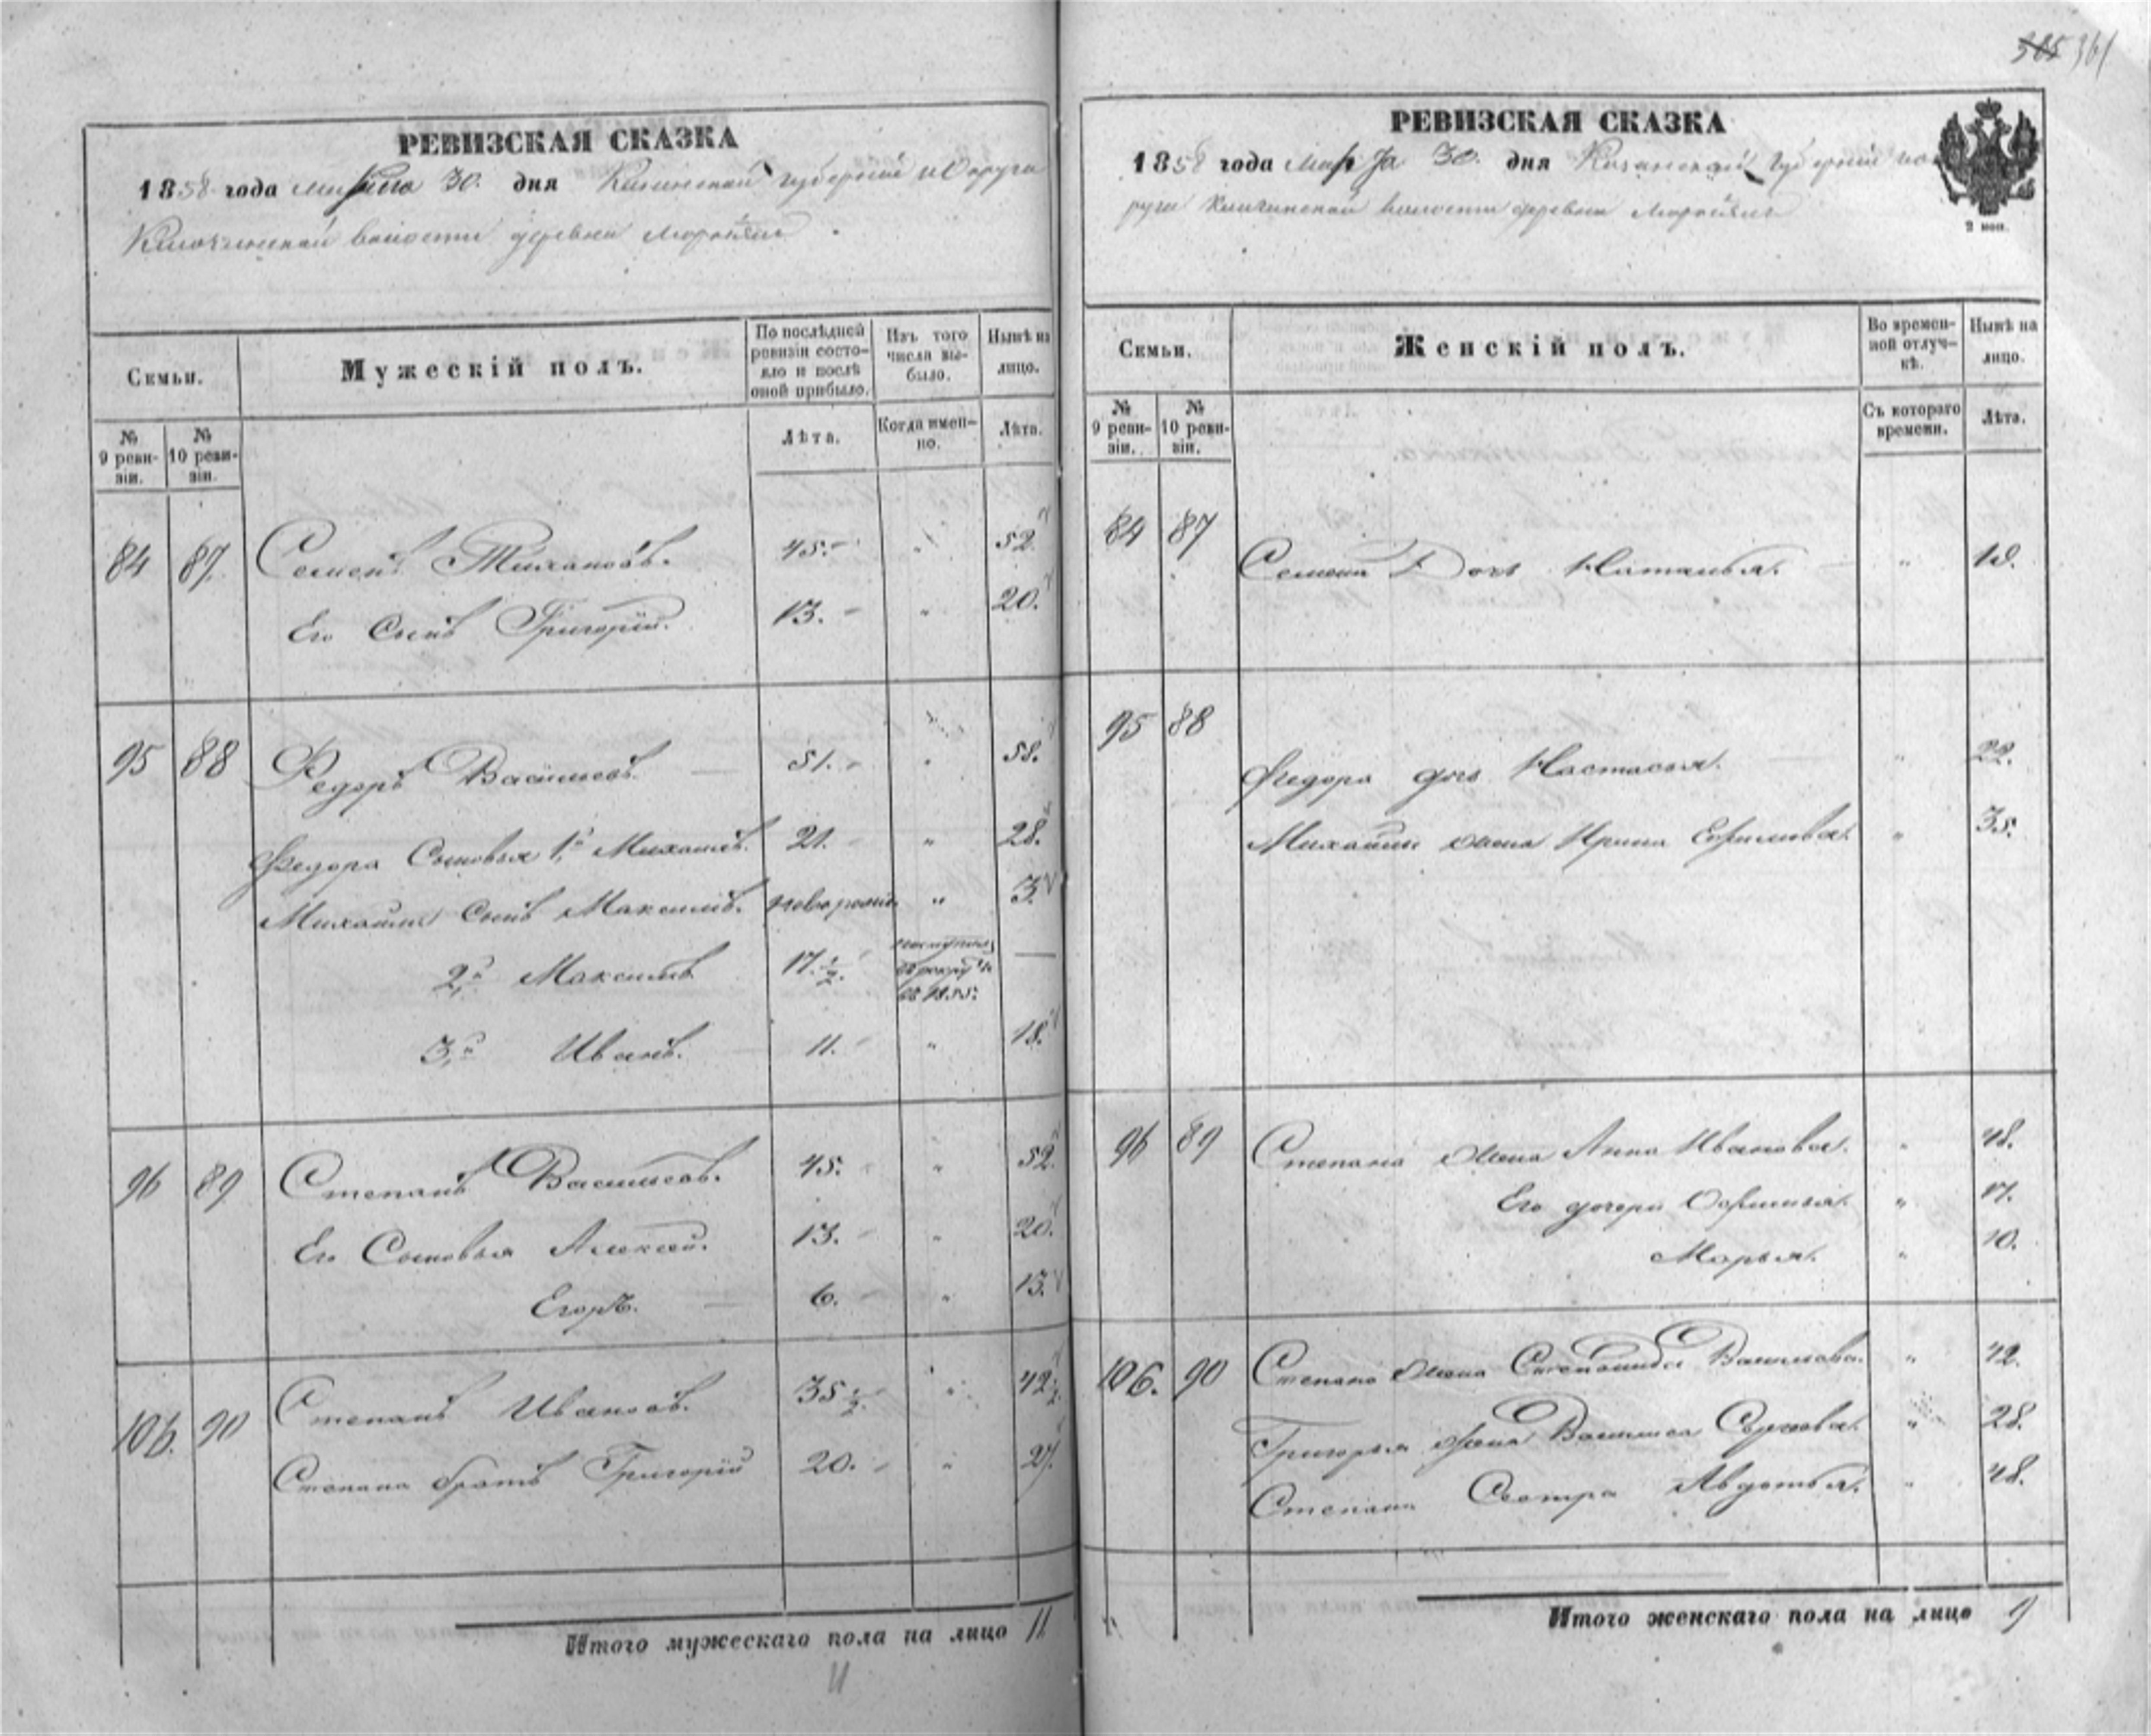 385 361
РЕВИЗСКАЯ СКАЗКА
1858 года марта 30. дня Казанской губернии и Округи
волости деревни
Семьи.
Мужескій полъ.
По послѣдней ревизіи состояло и послѣ оной прибыло.
Изъ того числа выбыло.
Нынѣ на лицо.
№ 9 ревизіи.
№ 10 ревизіи.
Лѣта.
Когда именно.
Лѣта.
84 87. Семенъ Тихановъ. 45. " 52.
Его Сынъ Григорій. 13. " 20.
95 88 Федоръ Васильевъ 51. " 58.
Федора Сыновья 1й Михайлъ. 21. " 28.
Михайлы Сынъ Максимъ. новорожд. " 3.
2й Максимъ 17.1/2. поступилъ въ рекруты въ 1855. —
3й Иванъ. 11. " 18.
96 89 Степанъ Васильевъ. 45. " 52.
Его Сыновья Алексей. 13. " 20.
Егоръ. 6. " 13.
106. 90 Степанъ Ивановъ. 35 1/2. " 42 1/2.
Степана братъ Григорій 20. " 27.
Итого мужескаго пола на лицо 11
11
РЕВИЗСКАЯ СКАЗКА
1858 года Марта 30. дня Казанской Губерніи и Ок
руги волости деревни
2 коп.
Семьи.
Женскій полъ.
Во временной отлучкѣ.
Нынѣ на лицо.
№ 9 ревизіи.
№ 10 ревизіи.
Съ котораго времени.
Лѣта.
84 87 Семена Дочь Наталья. " 18.
95 88 Федора дочь Настасья. " 22.
Михайлы жена Ирина Ефимова. " 35.
96 89 Степана жена Анна Иванова. " 48.
Его дочери Офимья. " 17.
Марья. " 10.
106. 90 Степана жена Степанида Васильева. " 42.
Григорья жена Василиса Сергеева. " 28.
Степана Сестра Авдотья. " 48.
Итого женскаго пола на лицо 9